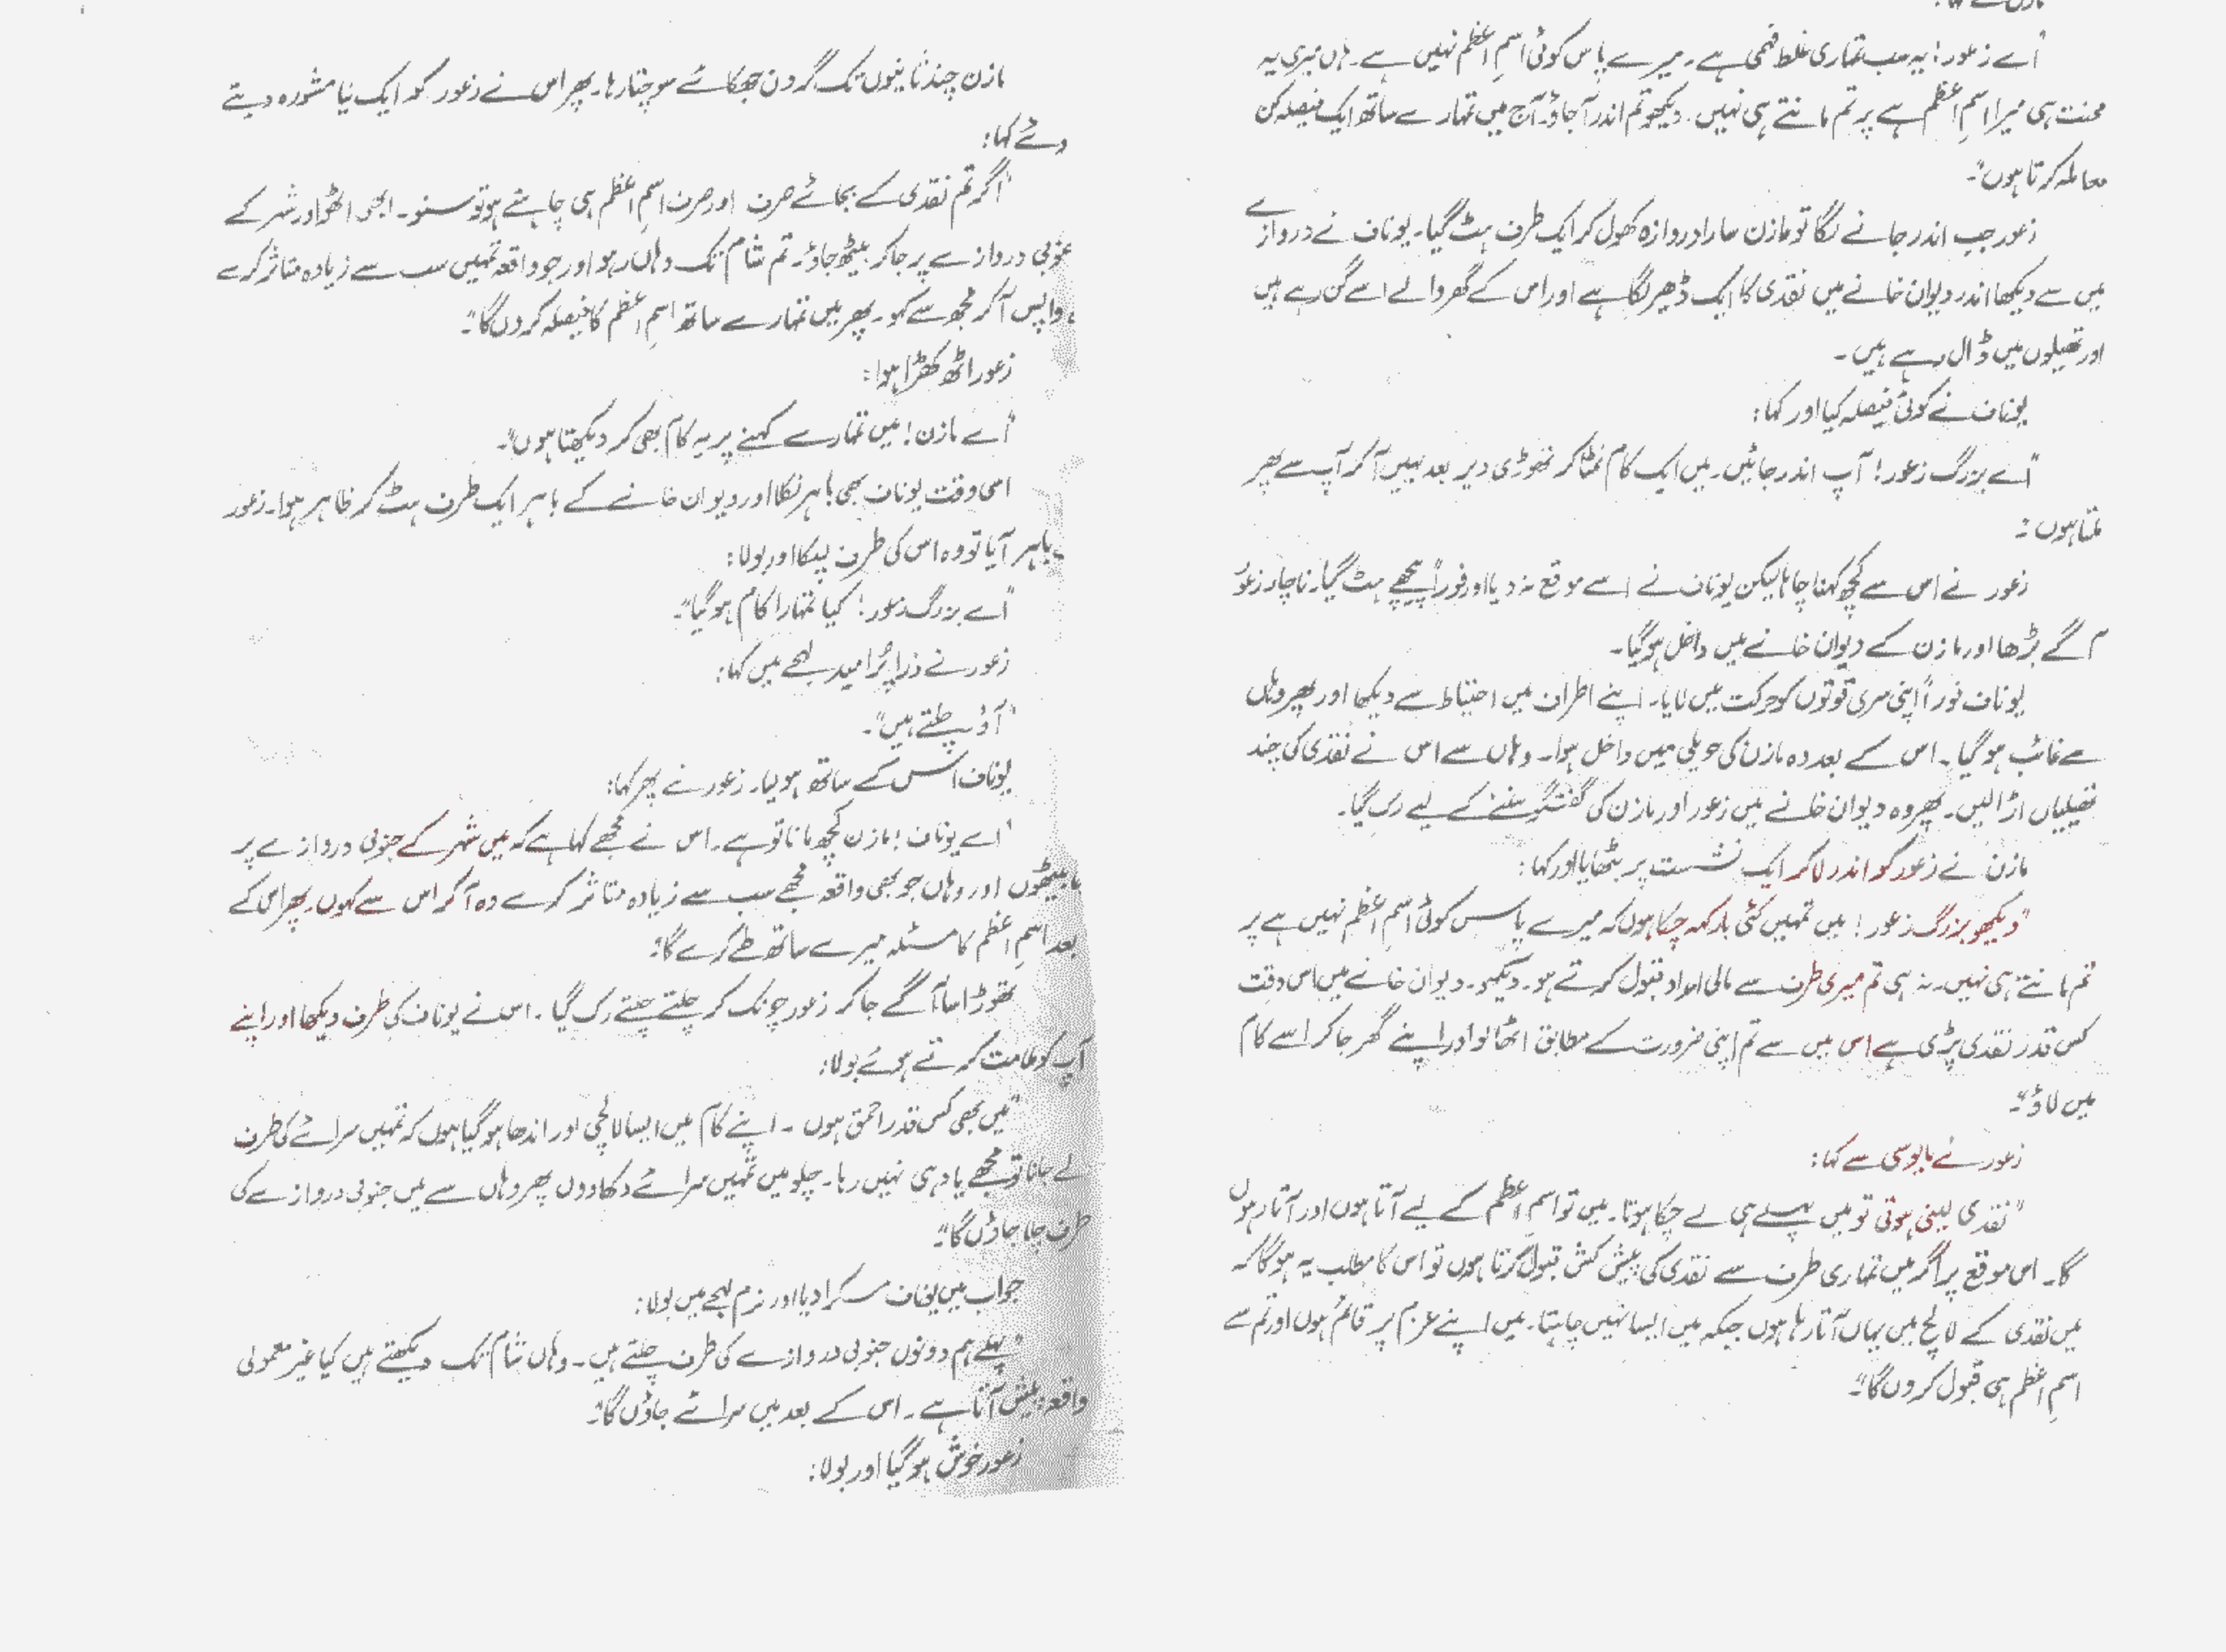 مازن نے کہا:
"اے زعور! یہ سب تمہاری غلط فہمی ہے۔ میرے پاس کوئی اسمِ اعظم نہیں ہے۔ ہاں میری یہ
محنت ہی میرا اسمِ اعظم ہے پر تم مانتے ہی نہیں۔ دیکھو تم اندر آ جاؤ۔ آج میں تمہارے ساتھ ایک فیصلہ کن
معاملہ کرتا ہوں"۔
زعور جب اندر جانے لگا تو مازن سارا دروازہ کھول کر ایک طرف ہٹ گیا۔ یوناف نے دروازے
میں سے دیکھا اندر دیوان خانے میں نقدی کا ایک ڈھیر لگا ہے اور اس کے گھر والے اسے گن رہے ہیں
اور تھیلوں میں ڈال رہے ہیں۔
یوناف نے کوئی فیصلہ کیا اور کہا:
"اے بزرگ زعور! آپ اندر جائیں۔ میں ایک کام نمٹا کر تھوڑی دیر بعد یہیں آ کر آپ سے پھر
ملتا ہوں:
زعور نے اس سے کچھ کہنا چاہا لیکن یوناف نے اسے موقع نہ دیا اور فوراً پیچھے ہٹ گیا۔ ناچار زعور
آگے بڑھا اور مازن کے دیوان خانے میں داخل ہو گیا۔
یوناف فوراً اپنی سری قوتوں کو حرکت میں لایا۔ اپنے اطراف میں احتیاط سے دیکھا اور پھر وہاں
سے غائب ہو گیا۔ اس کے بعد وہ مازن کی حویلی میں داخل ہوا۔ وہاں سے اس نے نقدی کی چند
تھیلیاں اڑا لیں۔ پھر وہ دیوان خانے میں زعور اور مازن کی گفتگو سننے کے لیے رک گیا۔
مازن نے زعور کو اندر لا کر ایک نشست پر بٹھایا اور کہا:
"دیکھو بزرگ زعور! میں تمہیں کئی بار کہہ چکا ہوں کہ میرے پاس کوئی اسمِ اعظم نہیں ہے پر
تم مانتے ہی نہیں۔ نہ ہی تم میری طرف سے مالی امداد قبول کرتے ہو۔ دیکھو۔ دیوان خانے میں اس وقت
کس قدر نقدی پڑی ہے اس میں سے تم اپنی ضرورت کے مطابق اٹھا لو اور اپنے گھر جا کر اسے کام
میں لاؤ"۔
زعور نے مایوسی سے کہا:
"نقدی لینی ہوتی تو میں پہلے ہی لے چکا ہوتا۔ میں تو اسمِ اعظم کے لیے آتا ہوں اور آتا رہوں
گا۔ اس موقع پر اگر میں تمہاری طرف سے نقدی کی پیش کش قبول کرتا ہوں تو اس کا مطلب یہ ہو گا کہ
میں نقدی کے لالچ میں یہاں آتا رہا ہوں جبکہ میں ایسا نہیں چاہتا۔ میں اپنے عزم پر قائم ہوں اور تم سے
اسمِ اعظم ہی قبول کروں گا"۔
مازن چند ثانیوں تک گردن جھکائے سوچتا رہا۔ پھر اس نے زعور کو ایک نیا مشورہ دیتے
ہوئے کہا:
"اگر تم نقدی کے بجائے صرف اور صرف اسمِ اعظم ہی چاہتے ہو تو سنو۔ ابھی اٹھو اور شہر کے
جنوبی دروازے پر جا کر بیٹھ جاؤ۔ تم شام تک وہاں رہو اور جو واقعہ تمہیں سب سے زیادہ متاثر کرے
واپس آ کر مجھ سے کہو۔ پھر میں تمہارے ساتھ اسمِ اعظم کا فیصلہ کر دوں گا"۔
زعور اٹھ کھڑا ہوا:
"اے مازن! میں تمہارے کہنے پر یہ کام بھی کر دیکھتا ہوں"۔
اسی وقت یوناف بھی باہر نکلا اور دیوان خانے کے باہر ایک طرف ہٹ کر ظاہر ہوا۔ زعور
باہر آیا تو وہ اس کی طرف لپکا اور بولا:
"اے بزرگ زعور! کیا تمہارا کام ہو گیا"۔
زعور نے ذرا پُرامید لہجے میں کہا:
"آؤ چلتے ہیں"۔
یوناف اس کے ساتھ ہو لیا۔ زعور نے پھر کہا:
"اے یوناف! مازن کچھ مانا تو ہے۔ اس نے مجھے کہا ہے کہ میں شہر کے جنوبی دروازے پر
جا بیٹھوں اور وہاں جو بھی واقعہ مجھے سب سے زیادہ متاثر کرے وہ آ کر اس سے کہوں۔ پھر اس کے
بعد اسمِ اعظم کا مسئلہ میرے ساتھ طے کرے گا"۔
تھوڑا سا آگے جا کر زعور چونک کر چلتے چلتے رک گیا۔ اس نے یوناف کی طرف دیکھا اور اپنے
آپ کو ملامت کرتے ہوئے بولا:
"میں بھی کس قدر احمق ہوں۔ اپنے کام میں ایسا لالچی اور اندھا ہو گیا ہوں کہ تمہیں سرائے کی طرف
لے جانا تو مجھے یاد ہی نہیں رہا۔ چلو میں تمہیں سرائے دکھا دوں پھر وہاں سے میں جنوبی دروازے کی
طرف چلا جاؤں گا"۔
جواب میں یوناف مسکرا دیا اور نرم لہجے میں بولا:
"پہلے ہم دونوں جنوبی دروازے کی طرف چلتے ہیں۔ وہاں شام تک دیکھتے ہیں کیا غیر معمولی
واقعہ پیش آتا ہے۔ اس کے بعد میں سرائے جاؤں گا"۔
زعور خوش ہو گیا اور بولا: